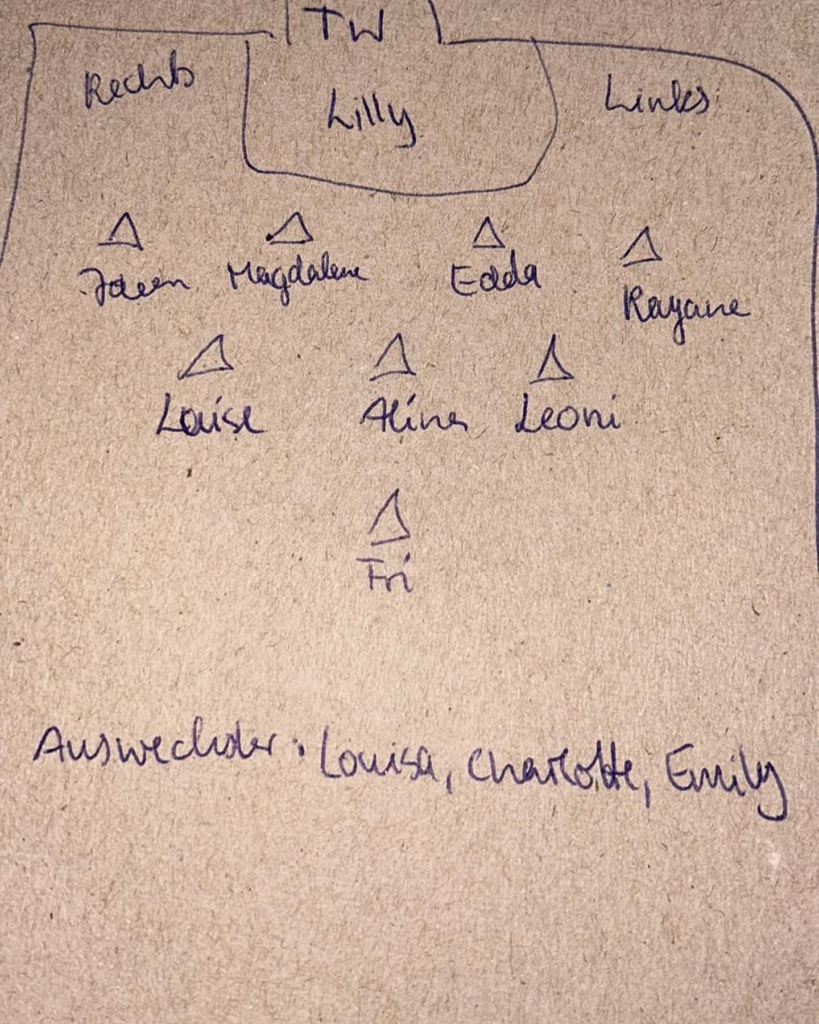 TW
Rechts Lilly Links
Magdalena Edda Rayane
Louise Alina Leoni
Fri
Auswechsler: Louisa, Charlotte, Emily